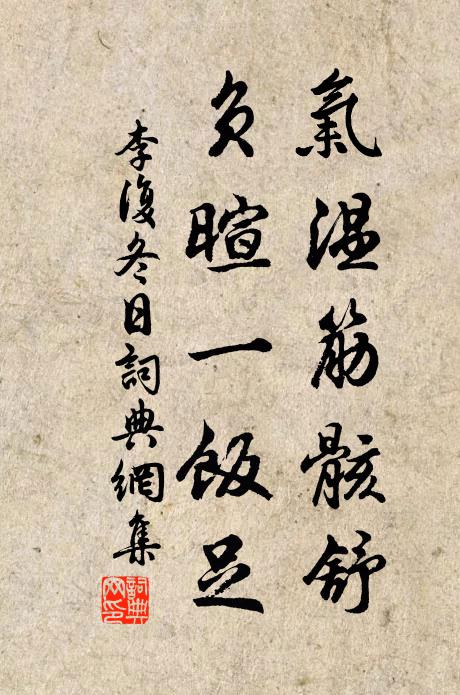 氣温筋骸舒
負暄一飯足
李復冬日詞典網集
詞典网印